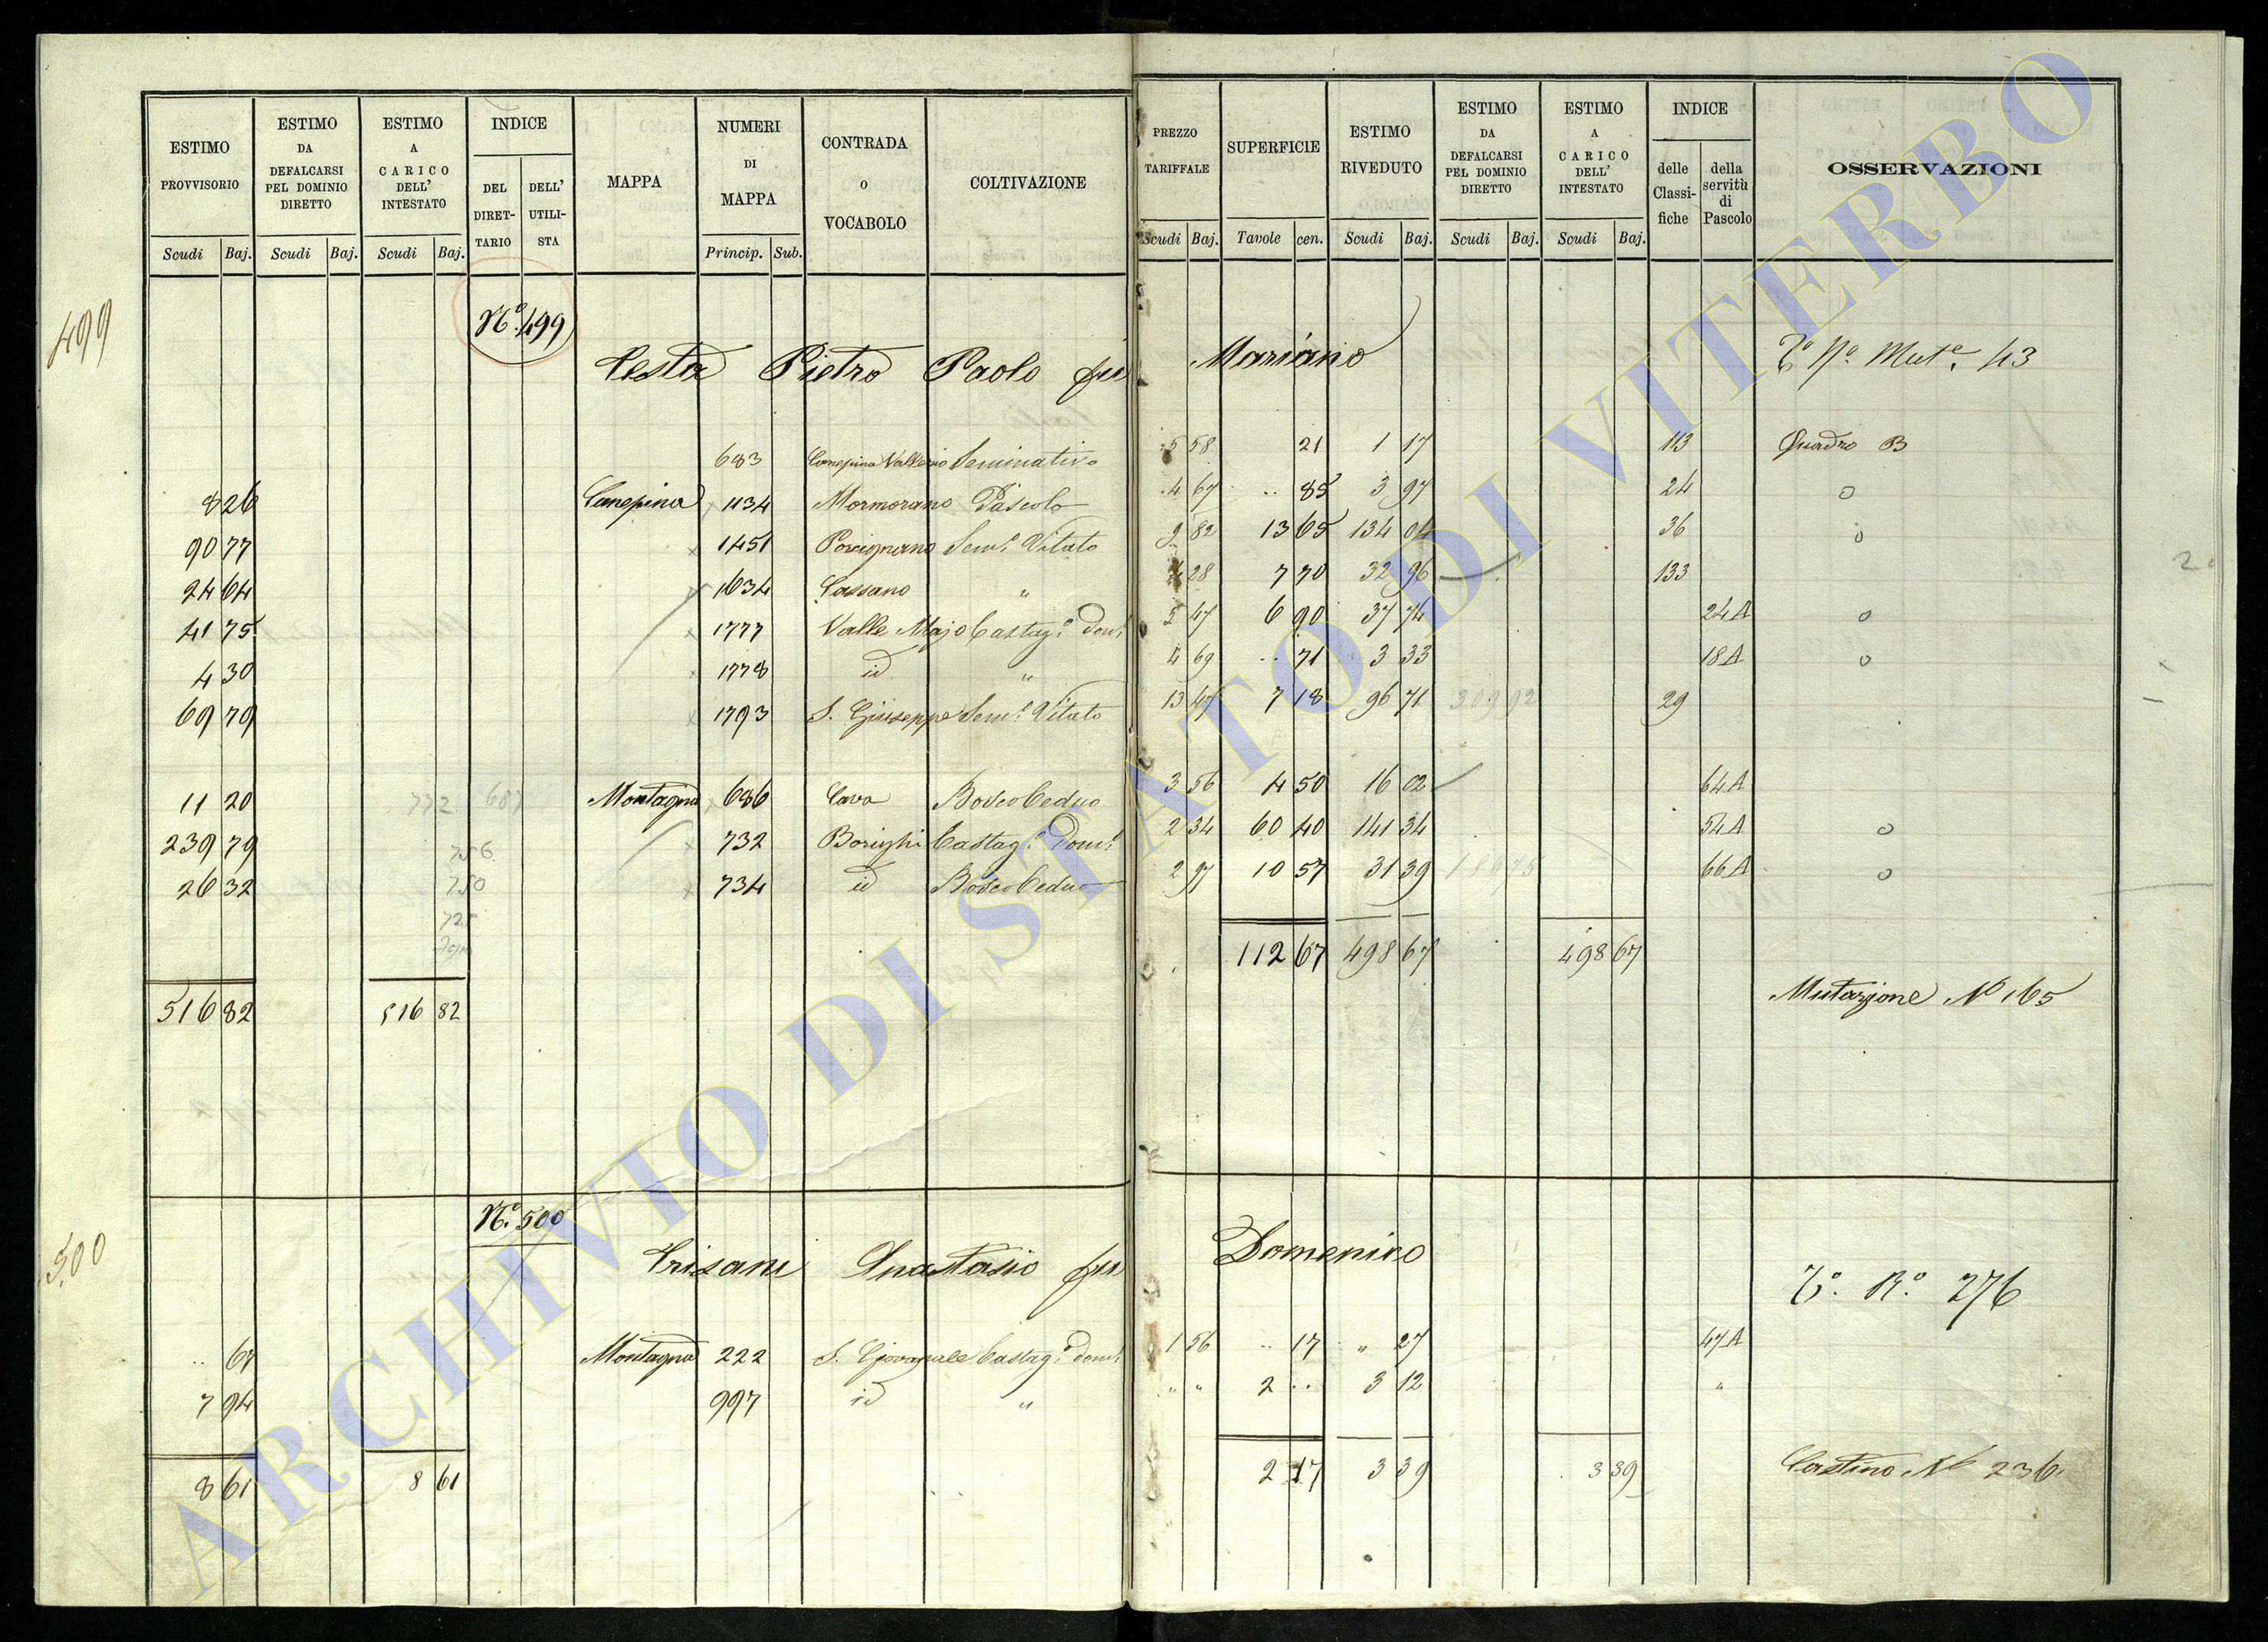 ESTIMO PROVVISORIO
ESTIMO DA DEFALCARSI PEL DOMINIO DIRETTO
ESTIMO A CARICO DELL' INTESTATO
INDICE
DEL DIRETTARIO
DELL' UTILISTA
MAPPA
NUMERI DI MAPPA
CONTRADA O VOCABOLO
COLTIVAZIONE
PREZZO TARIFFALE
SUPERFICIE
ESTIMO RIVEDUTO
ESTIMO DA DEFALCARSI PEL DOMINIO DIRETTO
ESTIMO A CARICO DELL' INTESTATO
INDICE
delle Classifiche
della servitù di Pascolo
OSSERVAZIONI
Scudi Baj. Scudi Baj. Scudi Baj. Princip. Sub. Scudi Baj. Tavole cen. Scudi Baj. Scudi Baj. Scudi Baj.
499
Nº. 499
Testa Pietro Paolo fu Mariano
Tº Nº Mutº. 43
683 Canepina Vallerio Seminativo 5 58 21 1 17 113 Quadro B
8 26 Canepina 1134 Mormorano Pascolo 4 67 .. 85 3 97 24 o
90 77 1451 Porcignano Semº. Vitato 9 82 13 65 134 04 36 o
24 64 1634 Cassano " 4 28 7 70 32 96 133
41 75 1777 Valle Majo Castagº. Domº. 5 47 6 90 37 74 24A o
4 30 1778 id " 4 69 .. 71 3 33 18A o
69 79 1793 S. Giuseppe Semº. Vitato 13 47 7 18 96 71 309 92 29
11 20 772 687 Montagna 686 Cava Bosco Ceduo 3 56 4 50 16 02 64A
239 79 756 732 Borighi Castagº. Domº. 2 34 60 40 141 34 54A o
26 32 750 734 id Bosco Ceduo 2 97 10 57 31 39 66A o
725
112 67 498 67 498 67
516 82 516 82
Mutazione Nº 165
500
Nº. 500
Trisani Anastasio fu Domenico
Tº. Rº. 276
.. 67 Montagna 222 S. Giovenale Castagº. Domº. 1 56 .. 17 " 27 47A
7 94 997 id " " " 2 .. 3 12 "
8 61 8 61 2 17 3 39 3 39
Castino Nº 236
ARCHIVIO DI STATO DI VITERBO